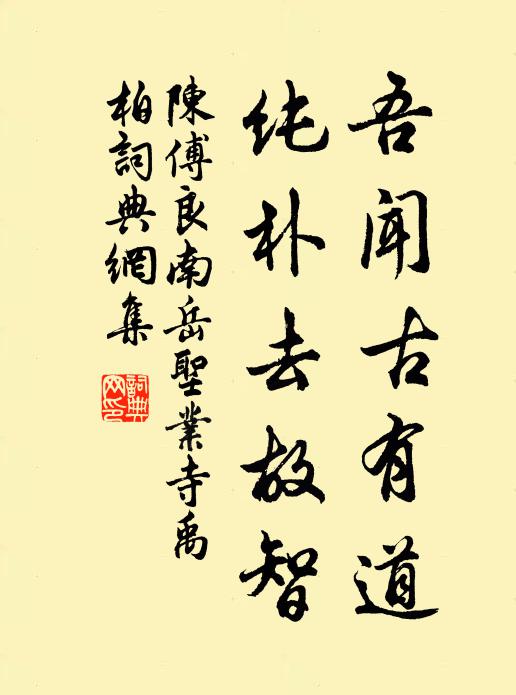 吾闻古有道
纯朴去故智
陳傅良南岳聖業寺禹
柏詞典網集
詞典
网印